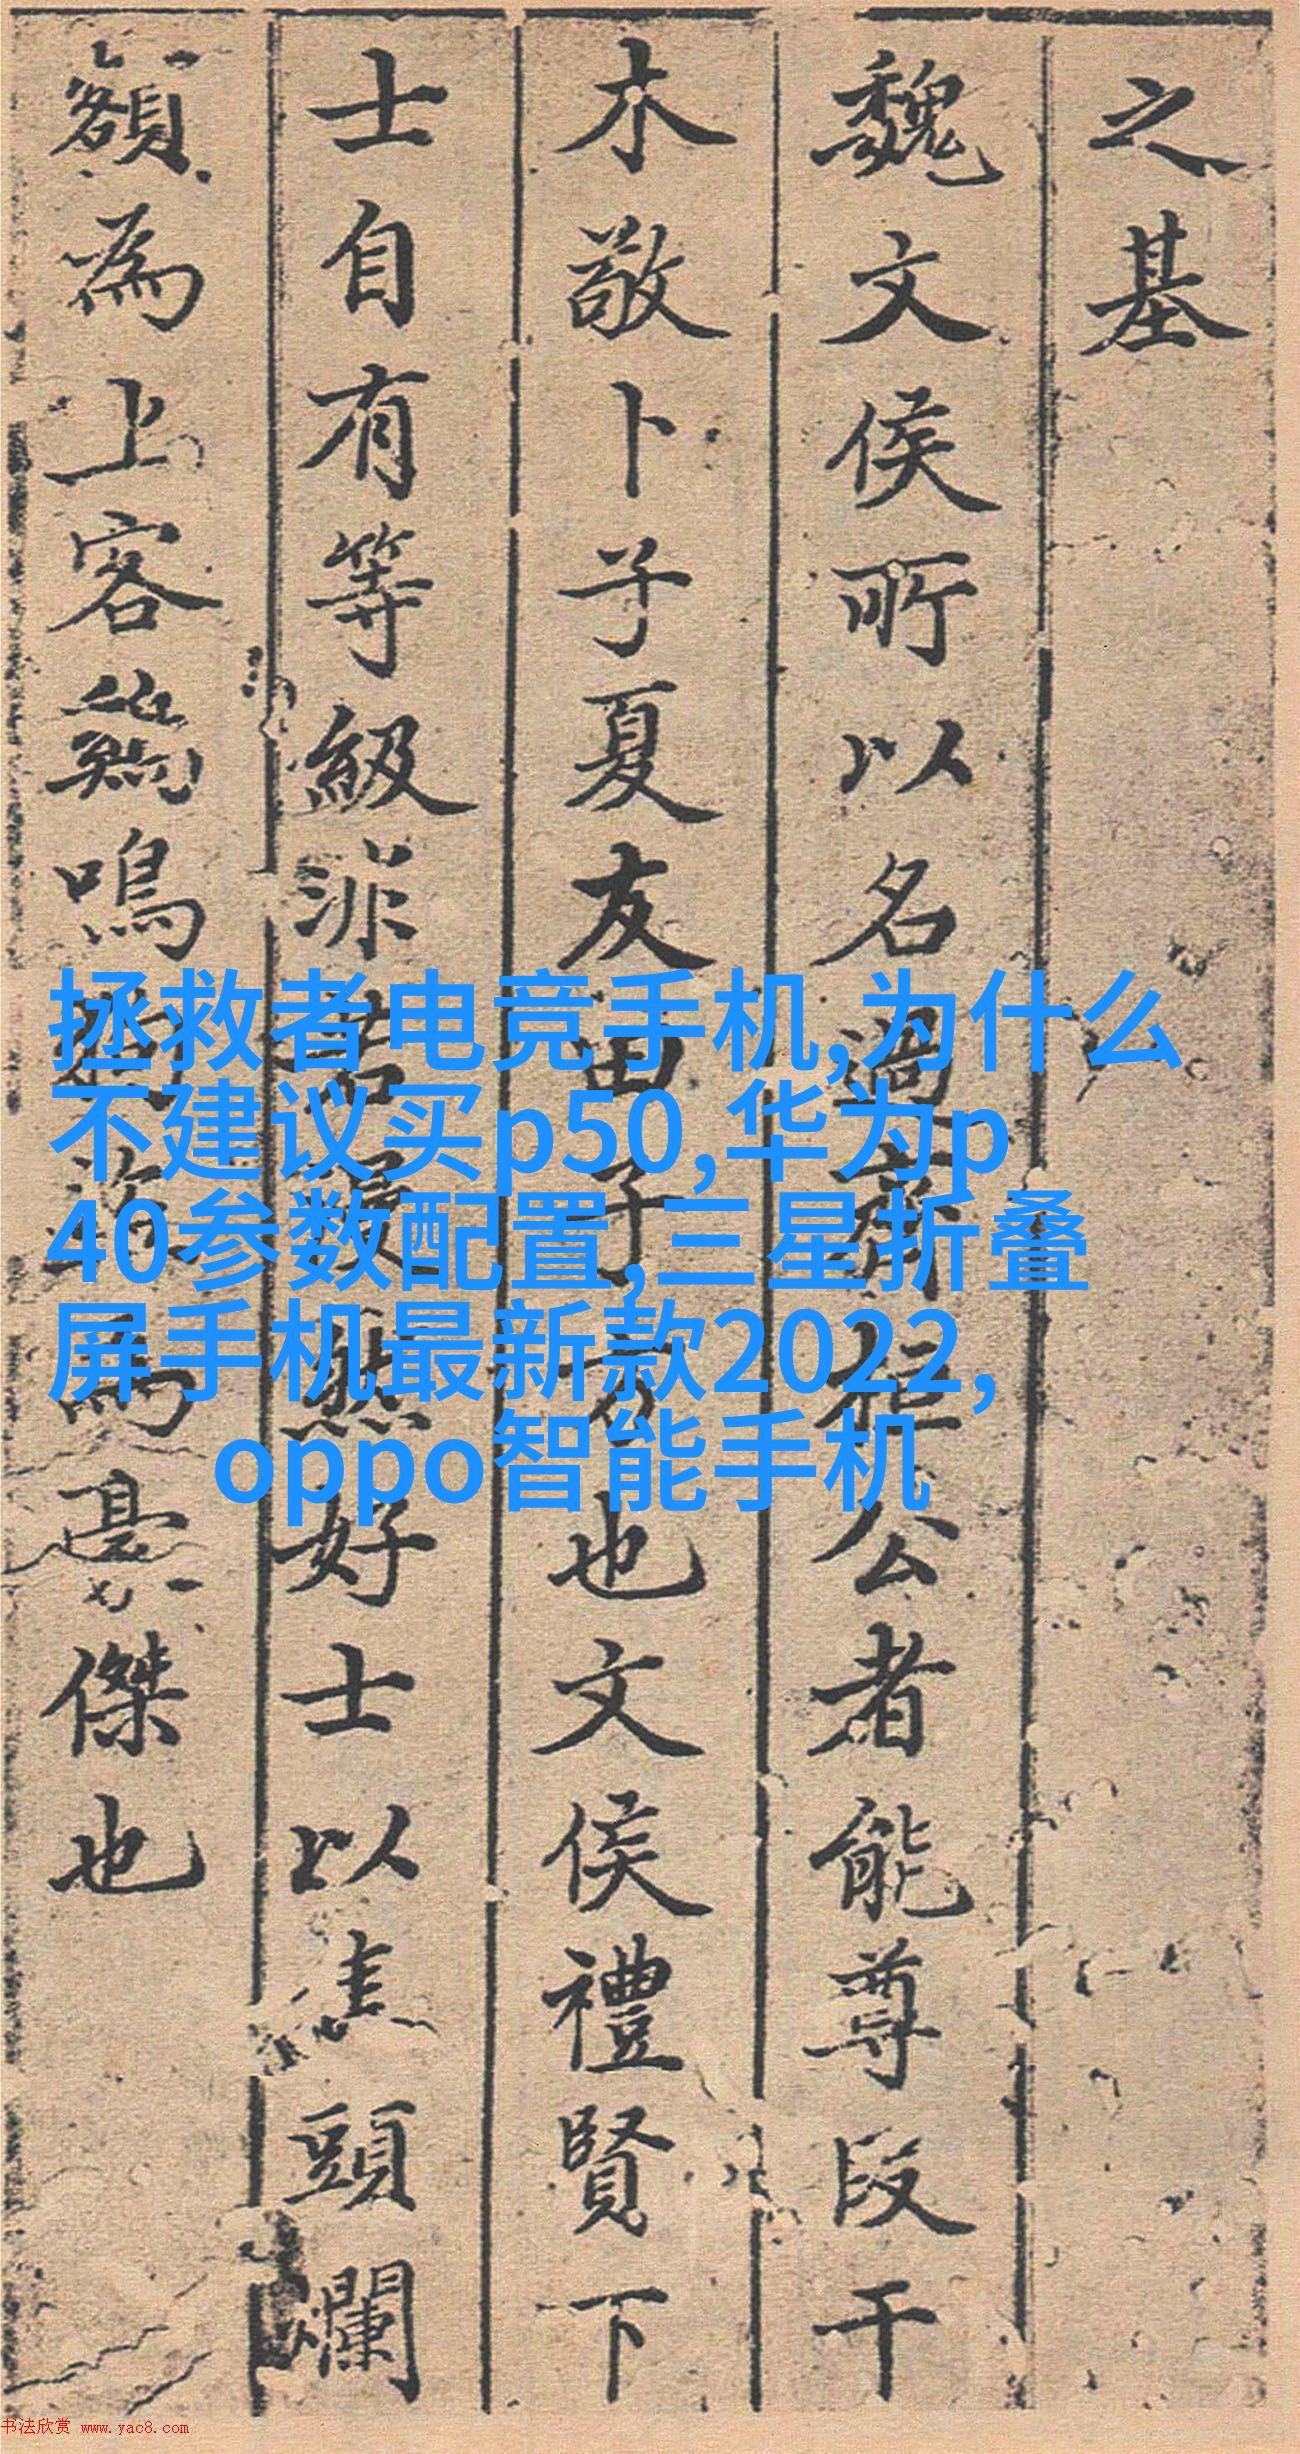 之基
魏文侯所以名過齊桓公者能尊段干
木敬卜子夏友田子方也文侯禮賢下
士自有等級非若嫚然好士以焦頭爛
額為上客鷄鳴狗盜為豪傑也
拯救者电竞手机,为什么
不建议买p50,华为p
40参数配置,三星折叠
屏手机最新款2022,
oppo智能手机
书法欣赏 www.yac8.com